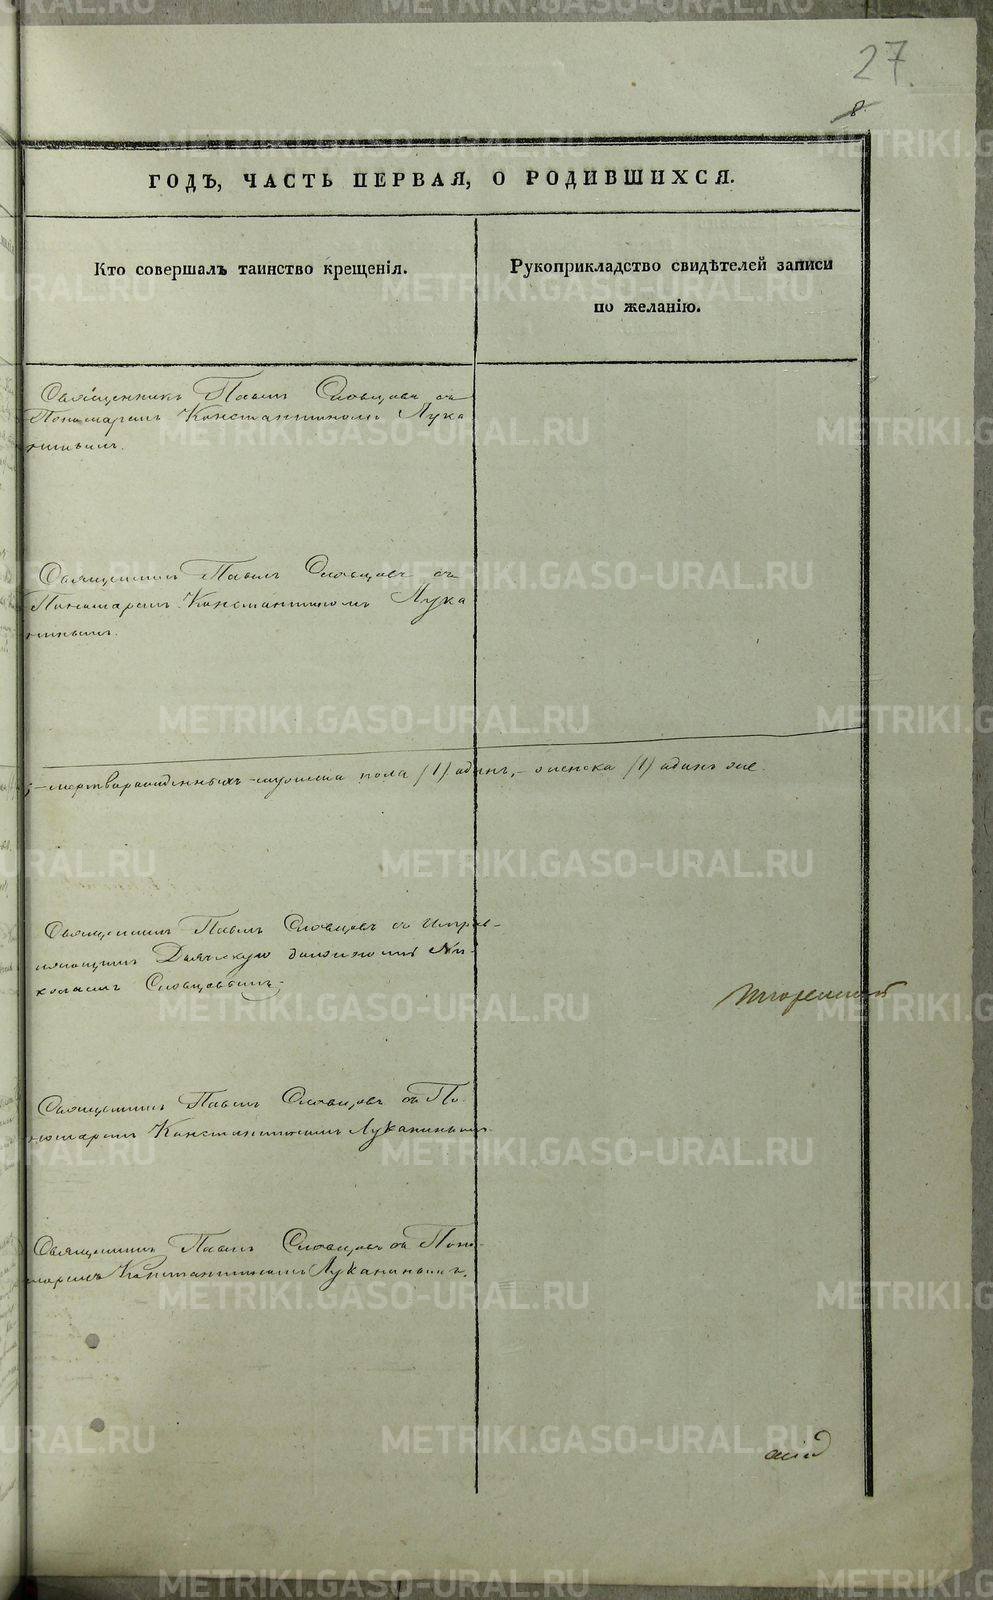 27.
8.
ГОДЪ, ЧАСТЬ ПЕРВАЯ, О РОДИВШИХСЯ.
Кто совершалъ таинство крещенія.
Рукоприкладство свидѣтелей записи
по желанію.
Священникъ Павелъ Словцовъ съ
Пономаремъ Константиномъ Лука
нинымъ.
Священникъ Павелъ Словцовъ съ
Пономаремъ Константиномъ Лука
нинымъ.
мертворожденныхъ мужеска пола (1) одинъ, женска (1) одинъ же.
Священникъ Павелъ Словцовъ съ
Дьяческую должность Ни-
колаемъ Словцовымъ.
Священникъ Павелъ Словцовъ съ По-
номаремъ Константиномъ Луканинымъ.
Священникъ Павелъ Словцовъ съ Поно-
маремъ Константиномъ Луканинымъ.
METRIKI.GASO-URAL.RU